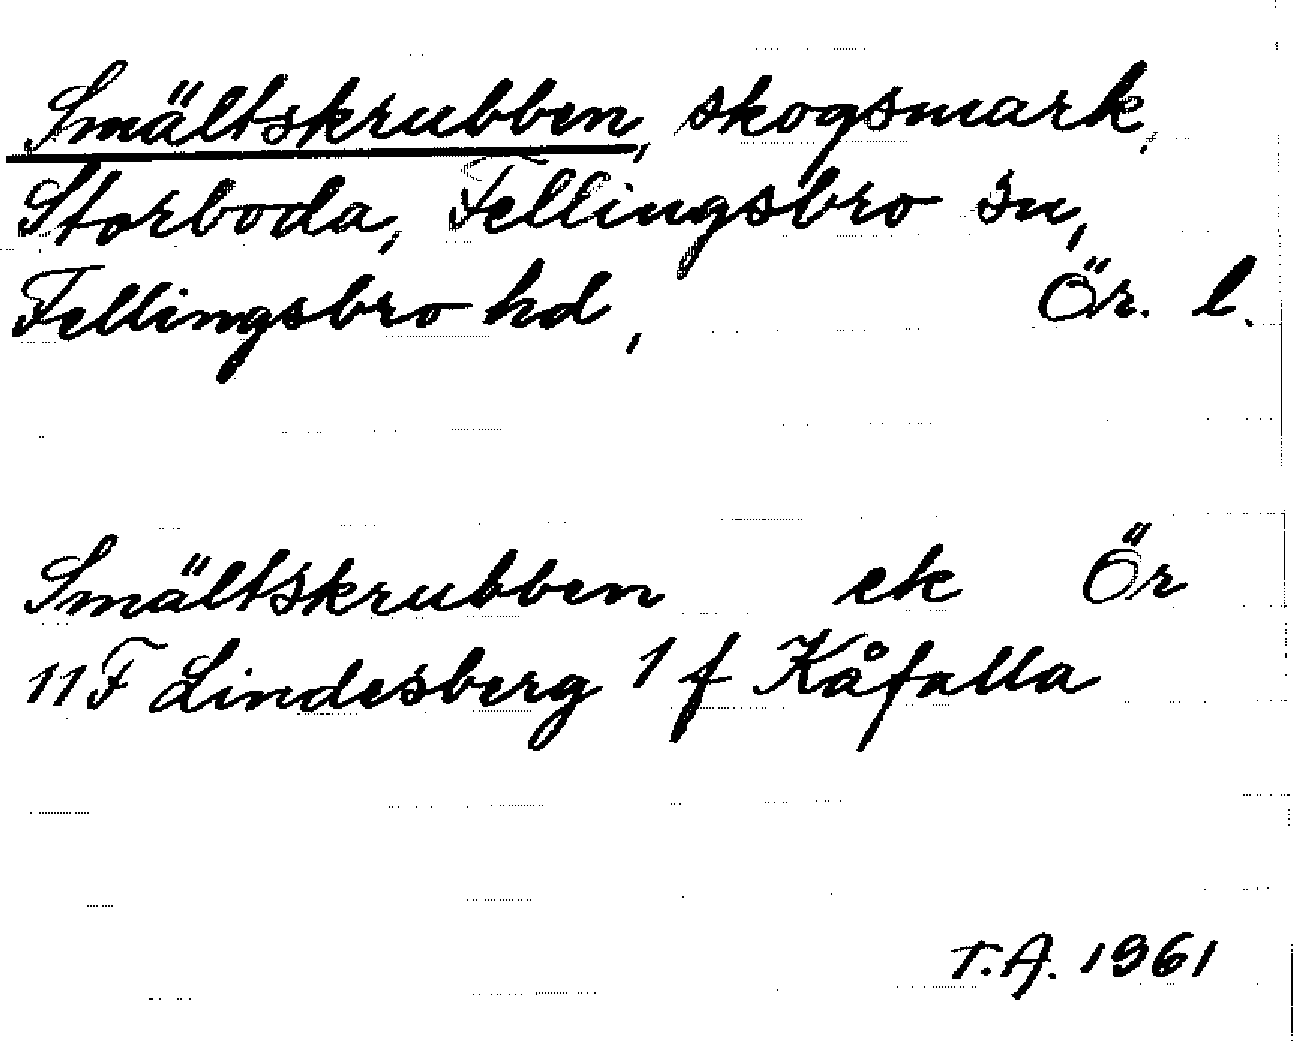 Smältskrubben, skogsmark,
Storboda, Fellingsbro sn,
Fellingsbro hd, Ör. l.
Smältskrubben ek Ör
11F Lindesberg 1 f Kåfalla
T.A. 1961